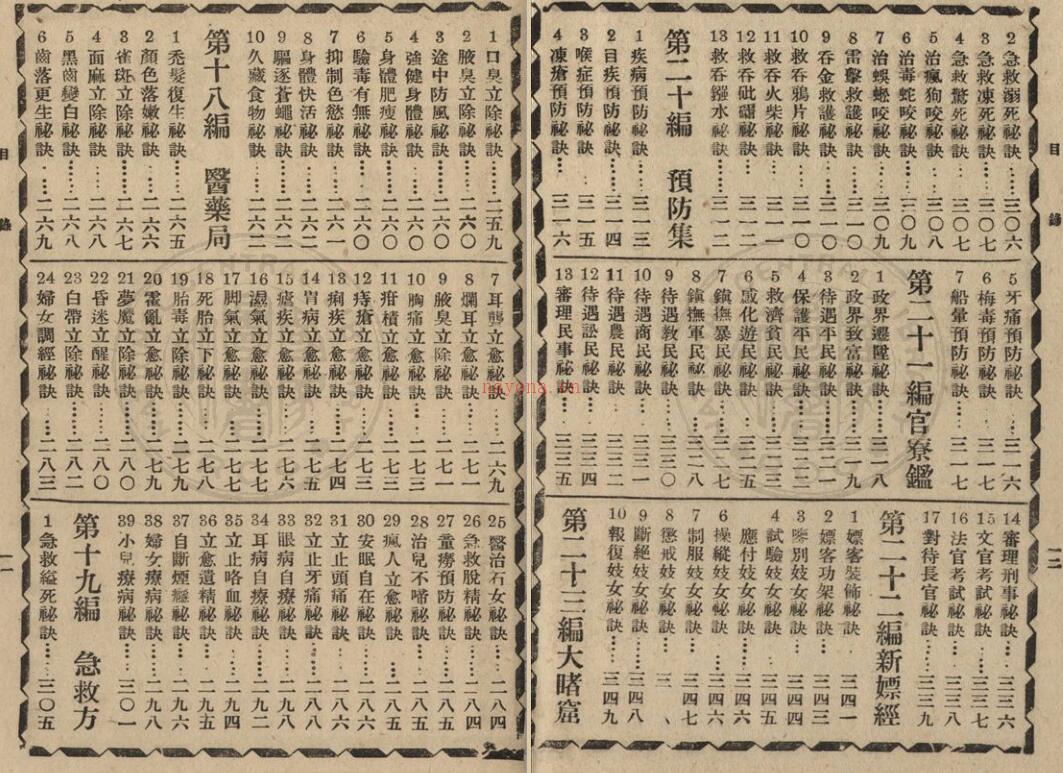 目錄
1口臭立除祕訣……二五九
2腋臭立除祕訣……二六〇
3途中防風祕訣……二六〇
4強健身體祕訣……二六〇
5身體肥瘦祕訣……二六〇
6驗毒有無祕訣……二六〇
7抑制色慾祕訣……二六一
8身體快活祕訣……二六二
9驅逐蒼蠅祕訣……二六二
10久藏食物祕訣……二六二
第十八編 醫藥局
1禿髮復生祕訣……二六五
2顏色落嫩祕訣……二六六
3雀斑立除祕訣……二六七
4面麻立除祕訣……二六八
5黑齒變白祕訣……二六八
6齒落更生祕訣……二六九
7耳聾立愈祕訣……二六九
8爛耳立愈祕訣……二七一
9腋臭立除祕訣……二七一
10胸痛立愈祕訣……二七三
11疳積立愈祕訣……二七三
12痔瘡立愈祕訣……二七三
13痢疾立愈祕訣……二七四
14胃病立愈祕訣……二七五
15瘧疾立愈祕訣……二七六
16濕氣立愈祕訣……二七七
17脚氣立愈祕訣……二七七
18死胎立下祕訣……二七七
19胎毒立除祕訣……二七九
20霍亂立愈祕訣……二七九
21夢魔立除祕訣……二八〇
22昏迷立醒祕訣……二八〇
23白帶立除祕訣……二八二
24婦女調經祕訣……二八三
25醫治石女祕訣……二八四
26急救脫精祕訣……二八四
27童癆預防祕訣……二八五
28治兒不啼祕訣……二八五
29瘋人立愈祕訣……二八五
30安眠自在祕訣……二八六
31立止頭痛祕訣……二八六
32立止牙痛祕訣……二八八
33眼病自療祕訣……二八八
34耳病自療祕訣……二九二
35立止咯血祕訣……二九四
36立愈遺精祕訣……二九五
37自斷煙癮祕訣……二九六
38婦女療病祕訣……二九八
39小兒療病祕訣……三〇一
第十九編 急救方
1急救縊死祕訣……三〇五
一一
目錄
2急救溺死祕訣……三〇六
3急救凍死祕訣……三〇七
4急救驚死祕訣……三〇七
5治瘋狗咬祕訣……三〇八
6治毒蛇咬祕訣……三〇九
7治蜈蚣咬祕訣……三〇九
8雷擊救護祕訣……三一〇
9吞金救護祕訣……三一〇
10救吞鴉片祕訣……三一〇
11救吞火柴祕訣……三一一
12救吞砒礵祕訣……三一二
13救吞鏹水祕訣……三一二
第二十編 預防集
1疾病預防祕訣……三一三
2目疾預防祕訣……三一四
3喉症預防祕訣……三一五
4凍瘡預防祕訣……三一六
5牙痛預防祕訣……三一六
6梅毒預防祕訣……三一七
7船暈預防祕訣……三一七
第二十一編官寮鑑
1政界遷陞祕訣……三一八
2政界致富祕訣……三一九
3待遇平民祕訣……三二二
4保護平民祕訣……三二二
5救濟貧民祕訣……三二三
6感化遊民祕訣……三二五
7鎮撫暴民祕訣……三二七
8鎮撫軍民祕訣……三二八
9待遇教民祕訣……三三〇
10待遇商民祕訣……三三一
11待遇農民祕訣……三三二
12待遇訟民祕訣……三三三
13審理民事祕訣……三三五
14審理刑事祕訣……三三六
15文官考試祕訣……三三七
16法官考試祕訣……三三八
17對待長官祕訣……三三九
第二十二編新嫖經
1嫖客裝飾祕訣……三四一
2嫖客功架祕訣……三四三
3鑒別妓女祕訣……三四四
4試驗妓女祕訣……三四五
5應付妓女祕訣……三四六
6操縱妓女祕訣……三四六
7制服妓女祕訣……三四七
8懲戒妓女祕訣
9斷絕妓女祕訣……三四八
10報復妓女祕訣……三四九
第二十三編大賭窟
一二
nayona.cn